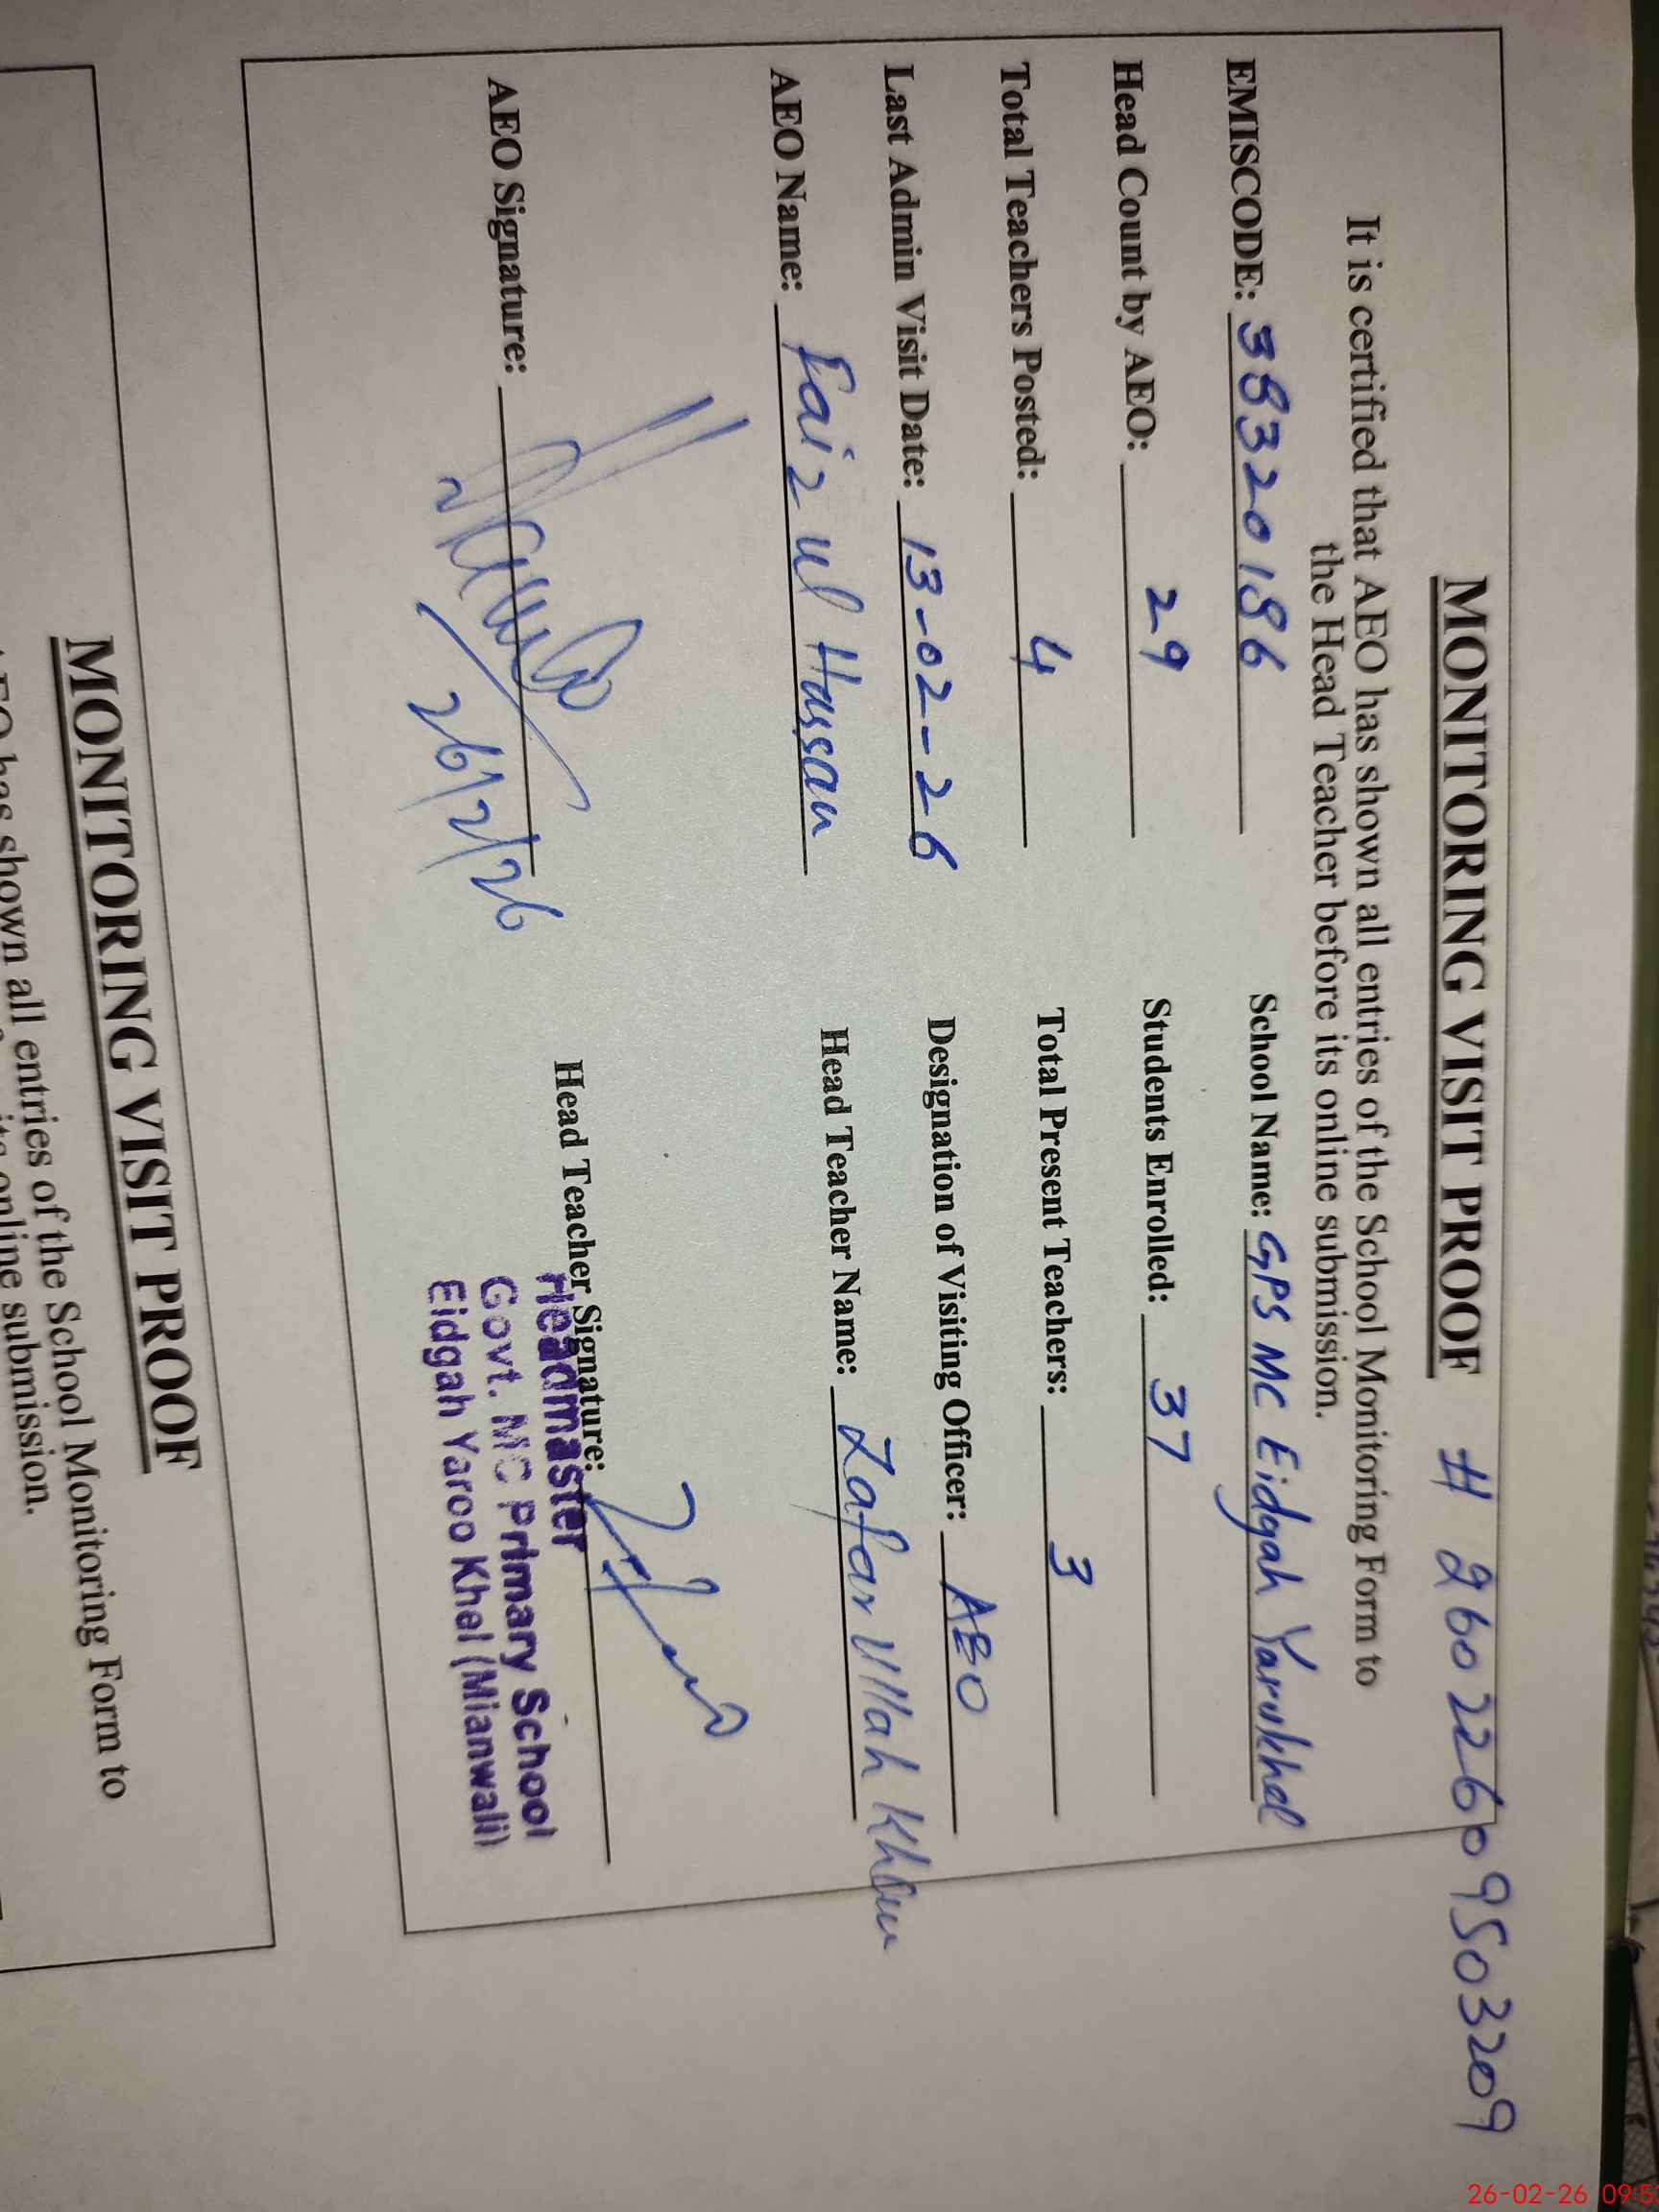 MONITORING VISIT PROOF # 26022609503209
It is certified that AEO has shown all entries of the School Monitoring Form to
the Head Teacher before its online submission.
EMISCODE: 38320186 School Name: GPS MC Eidgah Yarukhel
Head Count by AEO: 29 Students Enrolled: 37
Total Teachers Posted: 4 Total Present Teachers: 3
Last Admin Visit Date: 13-02-26 Designation of Visiting Officer: AEO
AEO Name: Faiz ul Hassan Head Teacher Name: Zafar Ullah Khan
AEO Signature: Head Teacher Signature:
26/2/26
Headmaster
Govt. MC Primary School
Eidgah Yaroo Khel (Mianwali)
MONITORING VISIT PROOF
AEO has shown all entries of the School Monitoring Form to
its online submission.
26-02-26 09:5